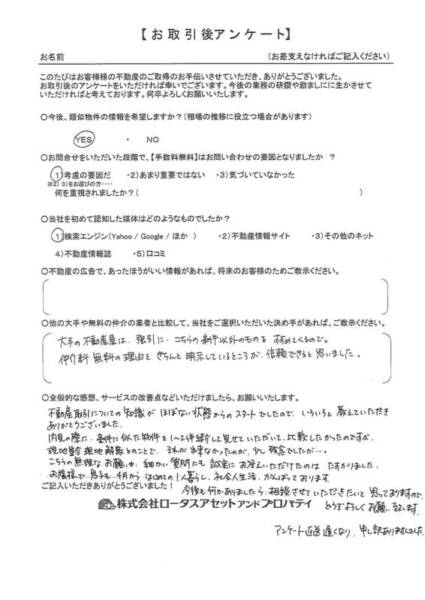 【お取引後アンケート】
お名前 (お差支えなければご記入ください)
このたびはお客様様の不動産のご取得のお手伝いさせていただき、ありがとうございました。
お取引後のアンケートをいただければ幸いでございます。今後の業務の研鑽や励ましにに生かさせて
いただければと考えております。何卒よろしくお願いいたします。
○今後、類似物件の情報を希望しますか？(相場の推移に役立つ場合があります)
YES ・ NO
○お問合せをいただいた段階で、【手数料無料】はお問い合わせの要因となりましたか ？
1)考慮の要因だ ・2)あまり重要ではない ・3)気づいていなかった
※2) 3)をお選びの方・・・・
何を重視されましたか？( )
○当社を初めて認知した媒体はどのようなものでしたか？
1)検索エンジン(Yahoo / Google / ほか ) ・2)不動産情報サイト ・3)その他のネット
4)不動産情報誌 ・5)口コミ
○不動産の広告で、あったほうがいい情報があれば、将来のお客様のためご教示ください。
○他の大手や無料の仲介の業者と比較して、当社をご選択いただいた決め手があれば、ご教示ください。
大手の不動産屋は、強引に、こちらの条件以外のものを すすめてくるので。
仲介料 無料の理由を きちんと 明示しているところが、信頼できると思いました。
○全般的な感想、サービスの改善点などいただけましたら、お願いします。
不動産取引についての知識が ほぼない状態からのスタートでしたので、いろいろと 教えていただき
ありがとうございました。
内見の際に、条件に似た物件を 1~2件紹介して見せていただいて、比較したかったのですが、
現地集合 現地解散とのことで、それが出来なかったのが、少し残念でしたが…
こちらの無理なお願いや、細かい質問にも 誠実に お答えいただけたのは たすかりました。
お陰様で、息子も 4月から はじめての1人暮らし、社会人生活、がんばっております
ご記入いただきありがとうございました！ 今後も何かありましたら、相談させていただきたいと 思っておりますので、
株式会社ロータスアセットアンドプロパティ どうぞよろしく お願い致します。
アンケート返送 遅くなり、申し訳ありませんでした。